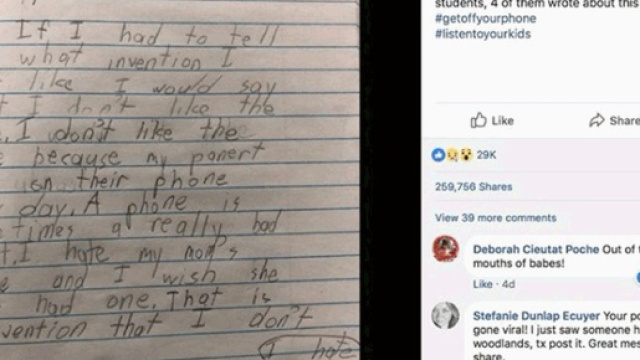 If I had to tell
what invention I
like I would say
I don't like the
I don't like the
because my panert
on their phone
day. A phone is
times a really bad
I hate my mom's
and I wish she
had one. That is
vention that I don't
I hate
students, 4 of them wrote about this
#getoffyourphone
#listentoyourkids
Like
Share
29K
259,756 Shares
View 39 more comments
Deborah Cieutat Poche Out of
mouths of babes!
Like · 4d
Stefanie Dunlap Ecuyer Your po
gone viral! I just saw someone h
woodlands, tx post it. Great mes
share.